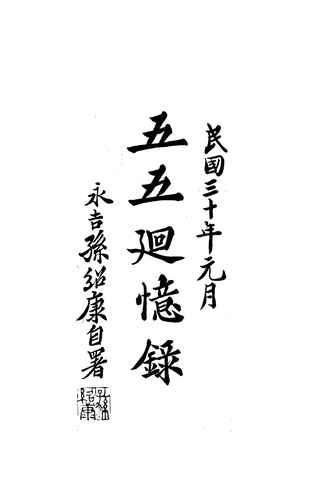 民國三十年元月
五五廻憶錄
永吉孫紹康自署
孫紹康